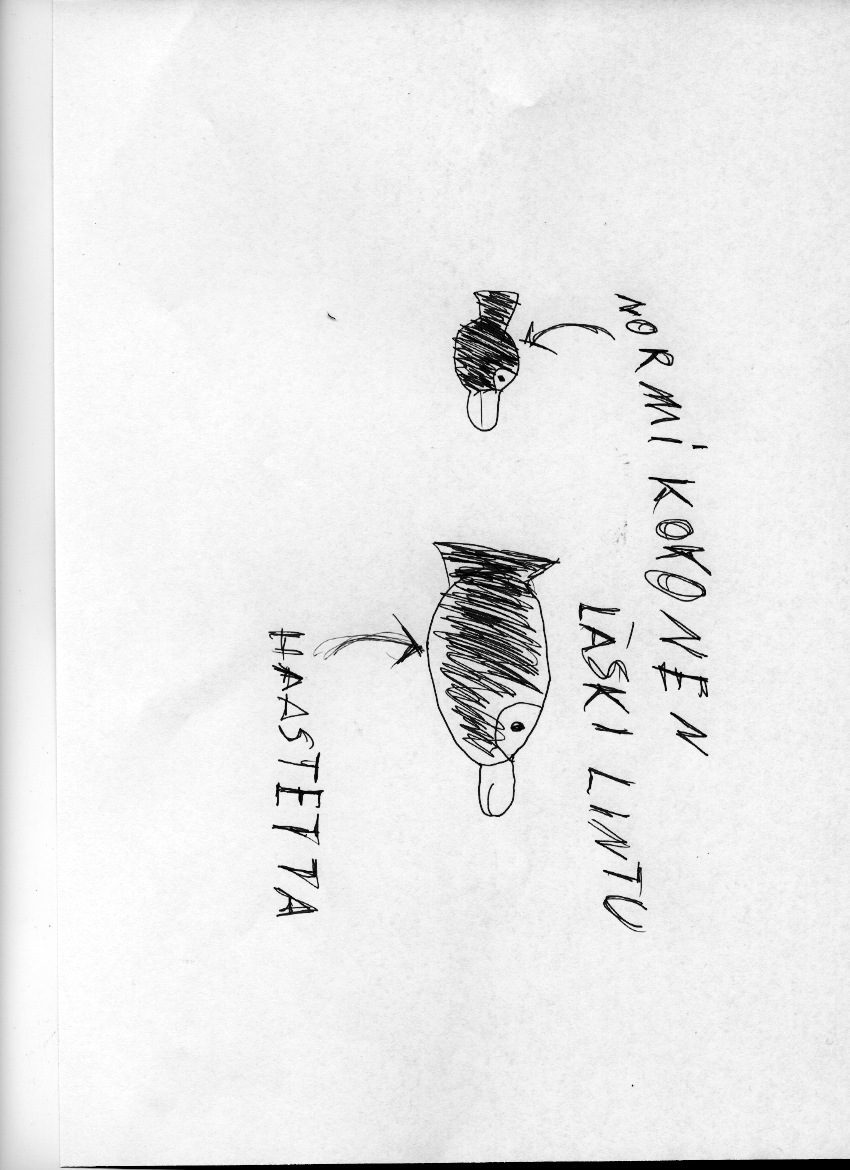 NORMI KOKONEN
LÄSKI LINTU
HAASTETTA